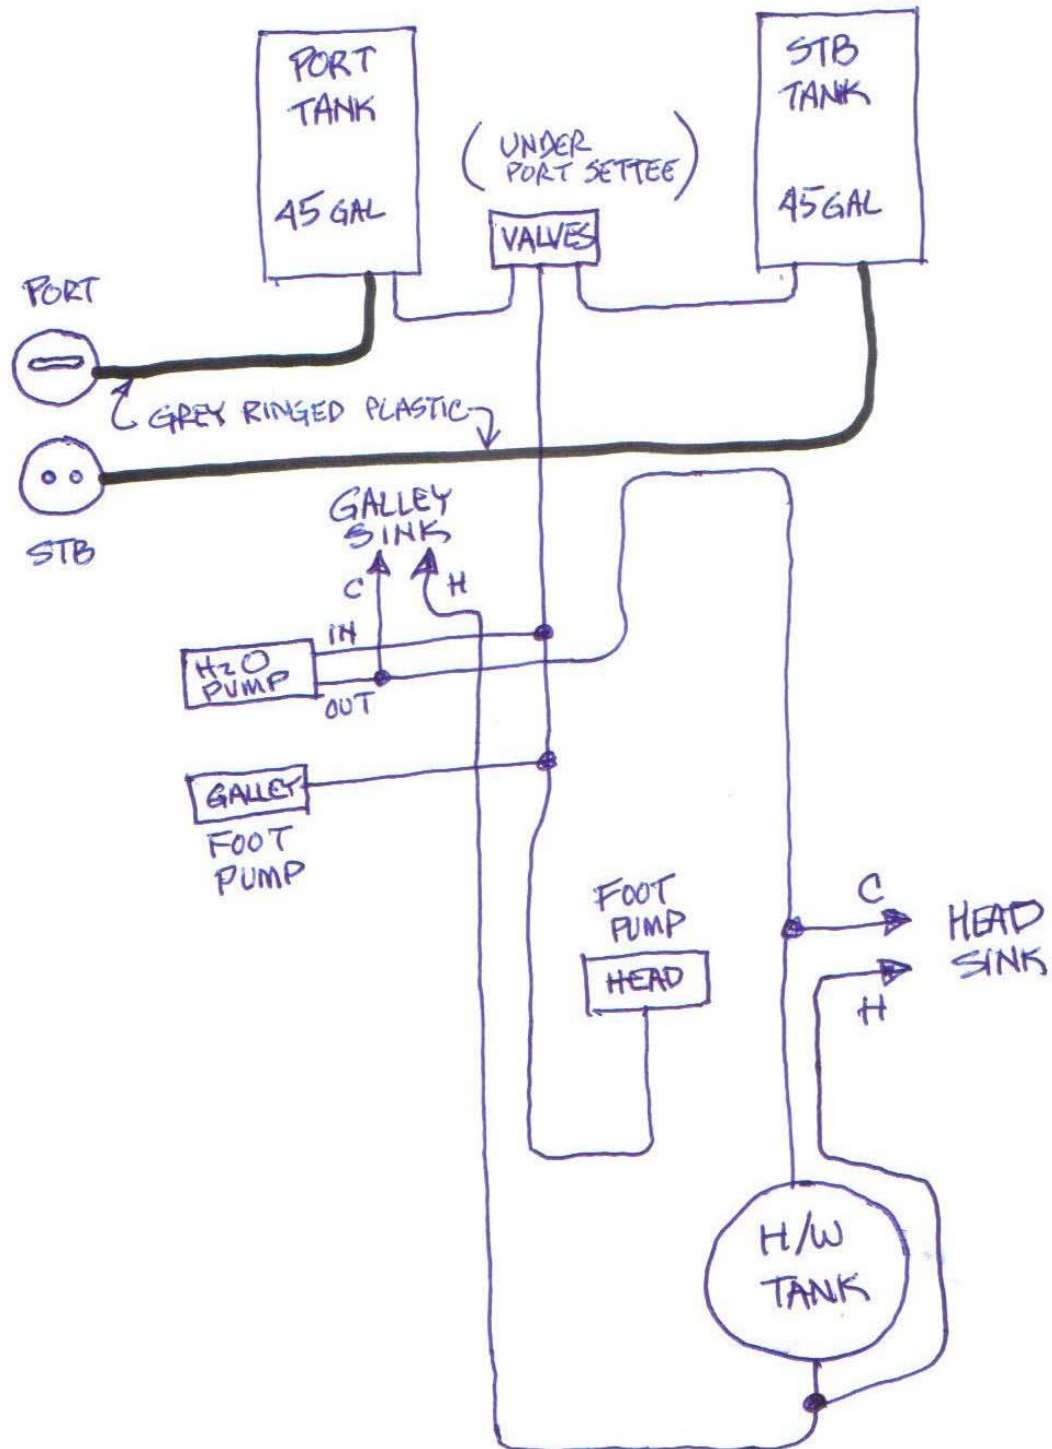 PORT
TANK
45 GAL
STB
TANK
45 GAL
(UNDER
PORT SETTEE)
VALVES
PORT
GREY RINGED PLASTIC
STB
GALLEY
SINK
C
H
IN
H2O
PUMP
OUT
GALLEY
FOOT
PUMP
FOOT
PUMP
HEAD
C
HEAD
SINK
H
H/W
TANK